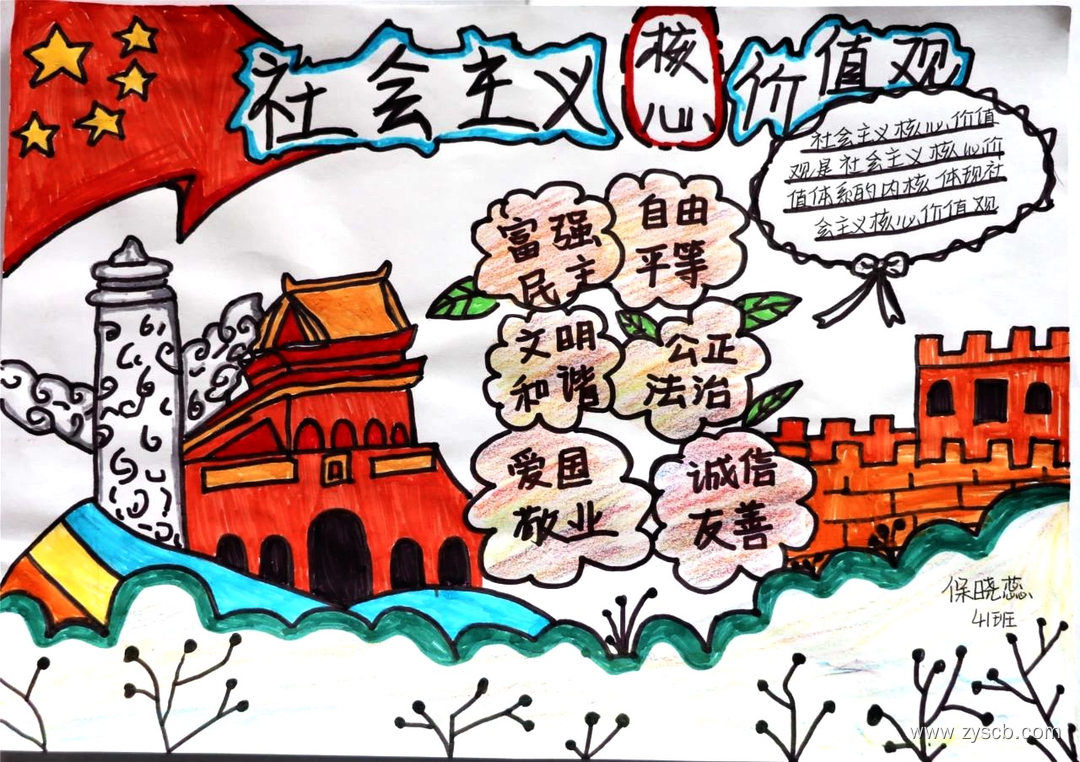 社会主义核心价值观
社会主义核心价值
观是社会主义核心价
值体系的内核体现社
会主义核心价值观
富强
民主
自由
平等
文明
和谐
公正
法治
爱国
敬业
诚信
友善
保晓蕊
41班
www.zyscb.com